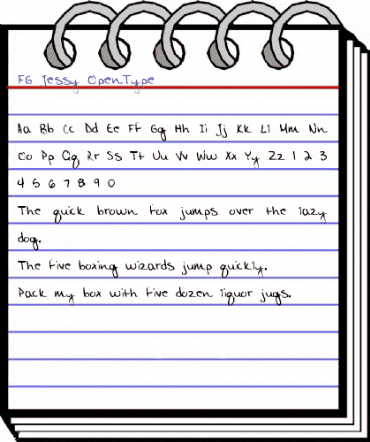 FG Tessy OpenType
Aa Bb Cc Dd Ee Ff Gg Hh Ii Jj Kk Ll Mm Nn
Oo Pp Qq Rr Ss Tt Uu Vv Ww Xx Yy Zz 1 2 3
4 5 6 7 8 9 0
The quick brown fox jumps over the lazy
dog.
The five boxing wizards jump quickly.
Pack my box with five dozen liquor jugs.